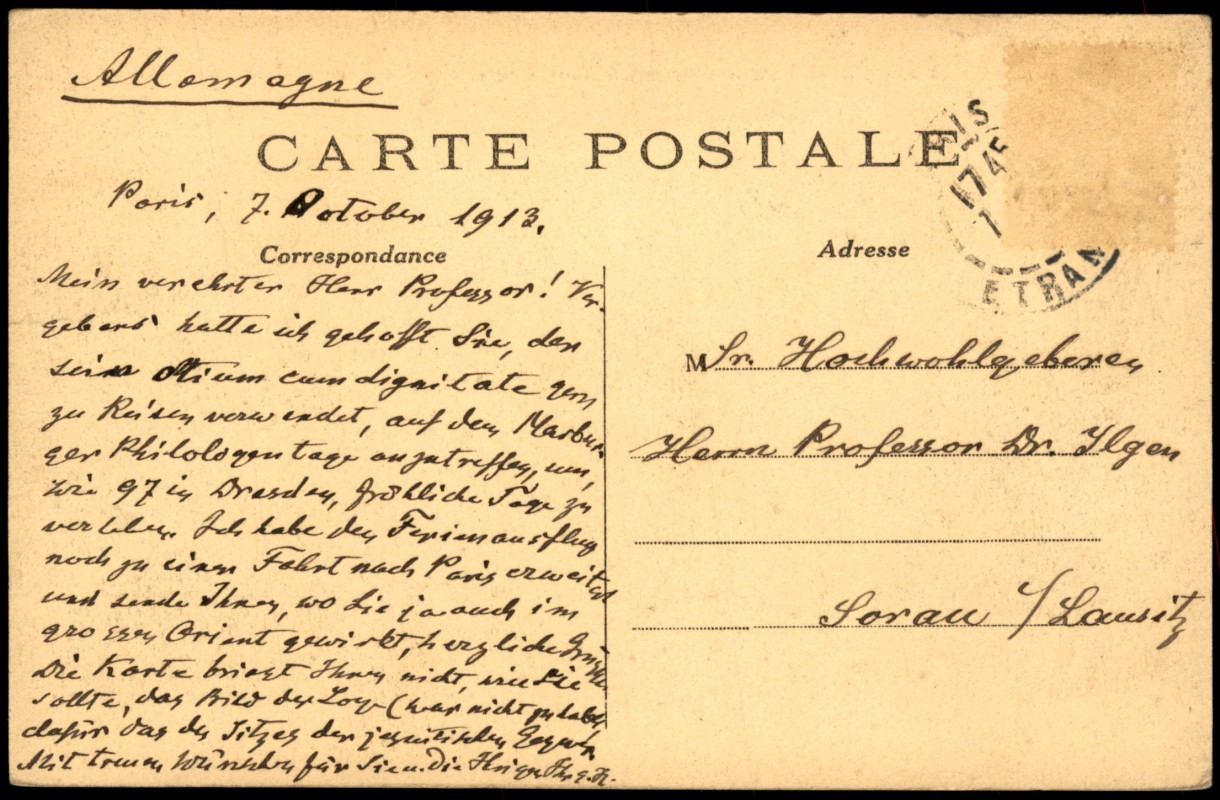 Allemagne
CARTE POSTALE
Paris, 7. October 1913.
Correspondance
Mein verehrter Herr Professor! Ver-
gebens hatte ich gehofft Sie, der
sein otium cum dignitate gern
zu Reisen verwendet, auf dem Marbur-
ger Philologentage anzutreffen, um,
wie 97 in Dresden, fröhliche Tage zu
verleben. Ich habe den Ferienausflug
noch zu einer Fahrt nach Paris erweitert
und sende Ihnen, wo Sie ja auch im
grossen Orient gewirkt, herzliche Grüsse.
Die Karte bringt Ihnen nicht, wie Sie
sollte, das Bild der Loge (war nicht zu haben)
dafür das des Sitzes der jesuitischen Gegner.
Mit treuen Wünschen für Sie u. die Ihrigen Ihr
Adresse
PARIS
1745
7
ETRAN
M Sr. Hochwohlgeboren
Herrn Professor Dr. Ilgen
Sorau / Lausitz